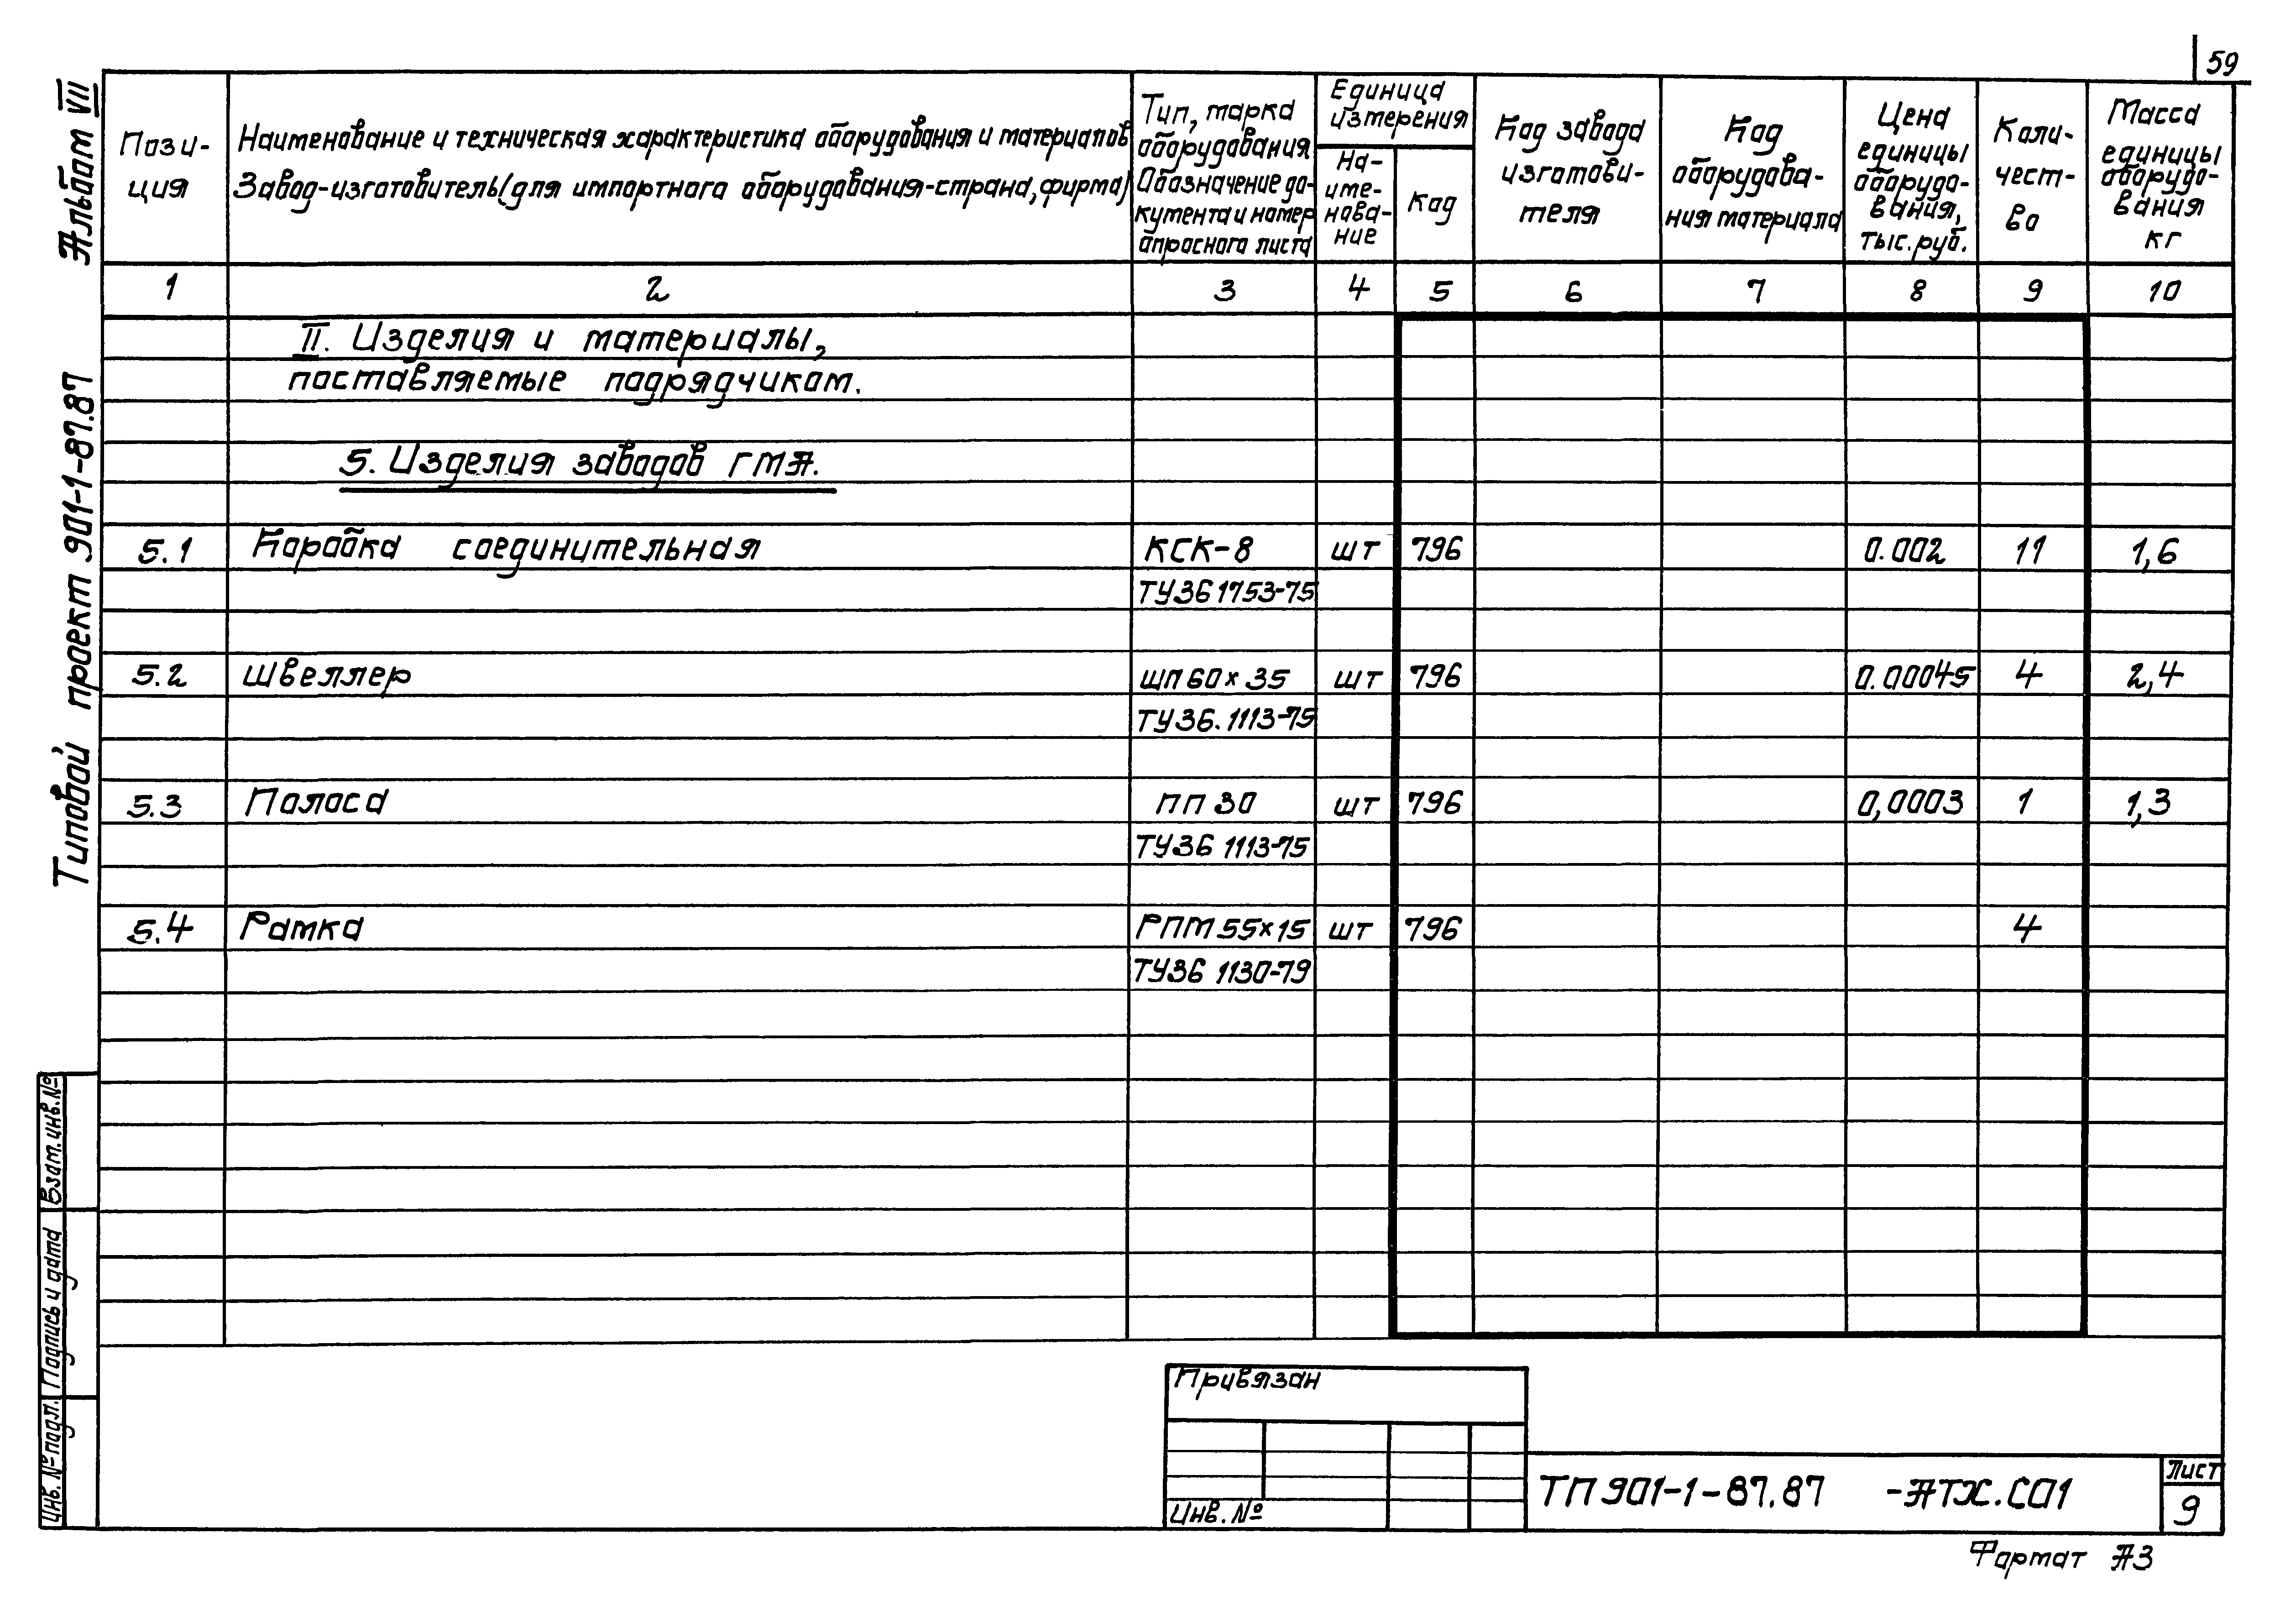 59
Альбом VII
Типовой проект 901-1-87.87
Пози-
ция
Наименование и техническая характеристика оборудования и материалов
Завод-изготовитель (для импортного оборудования-страна, фирма)
Тип, марка
оборудования
Обозначение до-
кумента и номер
опросного листа
Единица
измерения
На-
име-
нова-
ние
Код
Код завода
изготови-
теля
Код
оборудова-
ния материала
Цена
единицы
оборудо-
вания,
тыс. руб.
Коли-
чест-
во
Масса
единицы
оборудо-
вания
кг
1 2 3 4 5 6 7 8 9 10
II. Изделия и материалы,
поставляемые подрядчиком.
5. Изделия заводов ГМА.
5.1 Коробка соединительная КСК-8 шт 796 0.002 11 1,6
ТУ36 1753-75
5.2 Швеллер ШП 60х35 шт 796 0.00045 4 2,4
ТУ36. 1113-75
5.3 Полоса ПП 30 шт 796 0,0003 1 1,3
ТУ36 1113-75
5.4 Рамка РПМ 55х15 шт 796 4
ТУ36 1130-79
Взам. инв. №
Подпись и дата
Инв. № подл.
Привязан
Инв. №
ТП 901-1-87.87 -АТХ.СО1
Лист
9
Формат А3